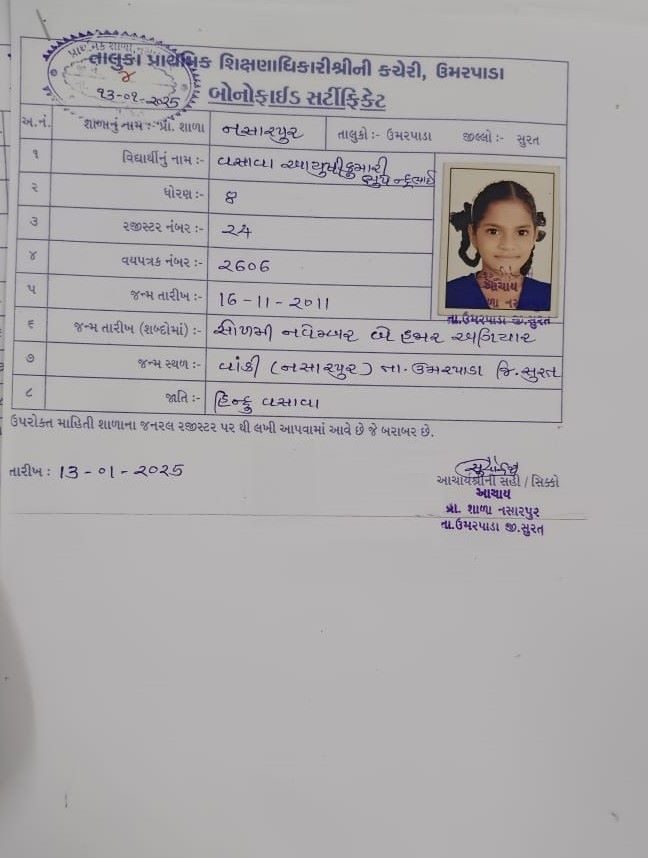 પ્રાથમિક શાળા, નસા
૪
૧૩-૦૧-૨૦૨૫
તાલુકા પ્રાથમિક શિક્ષણાધિકારીશ્રીની કચેરી, ઉમરપાડા
બોનોફાઈડ સર્ટીફિકેટ
અ.નં. શાળાનું નામ:- પ્રા. શાળા નસારપુર તાલુકો:- ઉમરપાડા જીલ્લો:- સુરત
૧ વિદ્યાર્થીનું નામ :- વસાવા આયુષીકુમારી
૨ ધોરણ :- ૪
૩ રજીસ્ટર નંબર :- ૨૮
૪ વયપત્રક નંબર :- 2606
૫ જન્મ તારીખ :- 16-11-2011
૬ જન્મ તારીખ (શબ્દોમાં) :- સોળમી નવેમ્બર બે હજાર અગિયાર
૭ જન્મ સ્થળ :- વાંકી (નસારપુર) તા. ઉમરપાડા જિ. સુરત
૮ જાતિ :- હિન્દુ વસાવા
આચાય
ળા નસ
તા.ઉમરપાડા જી.સુરત
ઉપરોક્ત માહિતી શાળાના જનરલ રજીસ્ટર પર થી લખી આપવામાં આવે છે જે બરાબર છે.
તારીખ : 13-01-2025
આચાર્યશ્રીની સહી / સિક્કો
આચાય
પ્રા. શાળા નસારપુર
તા.ઉમરપાડા જી.સુરત